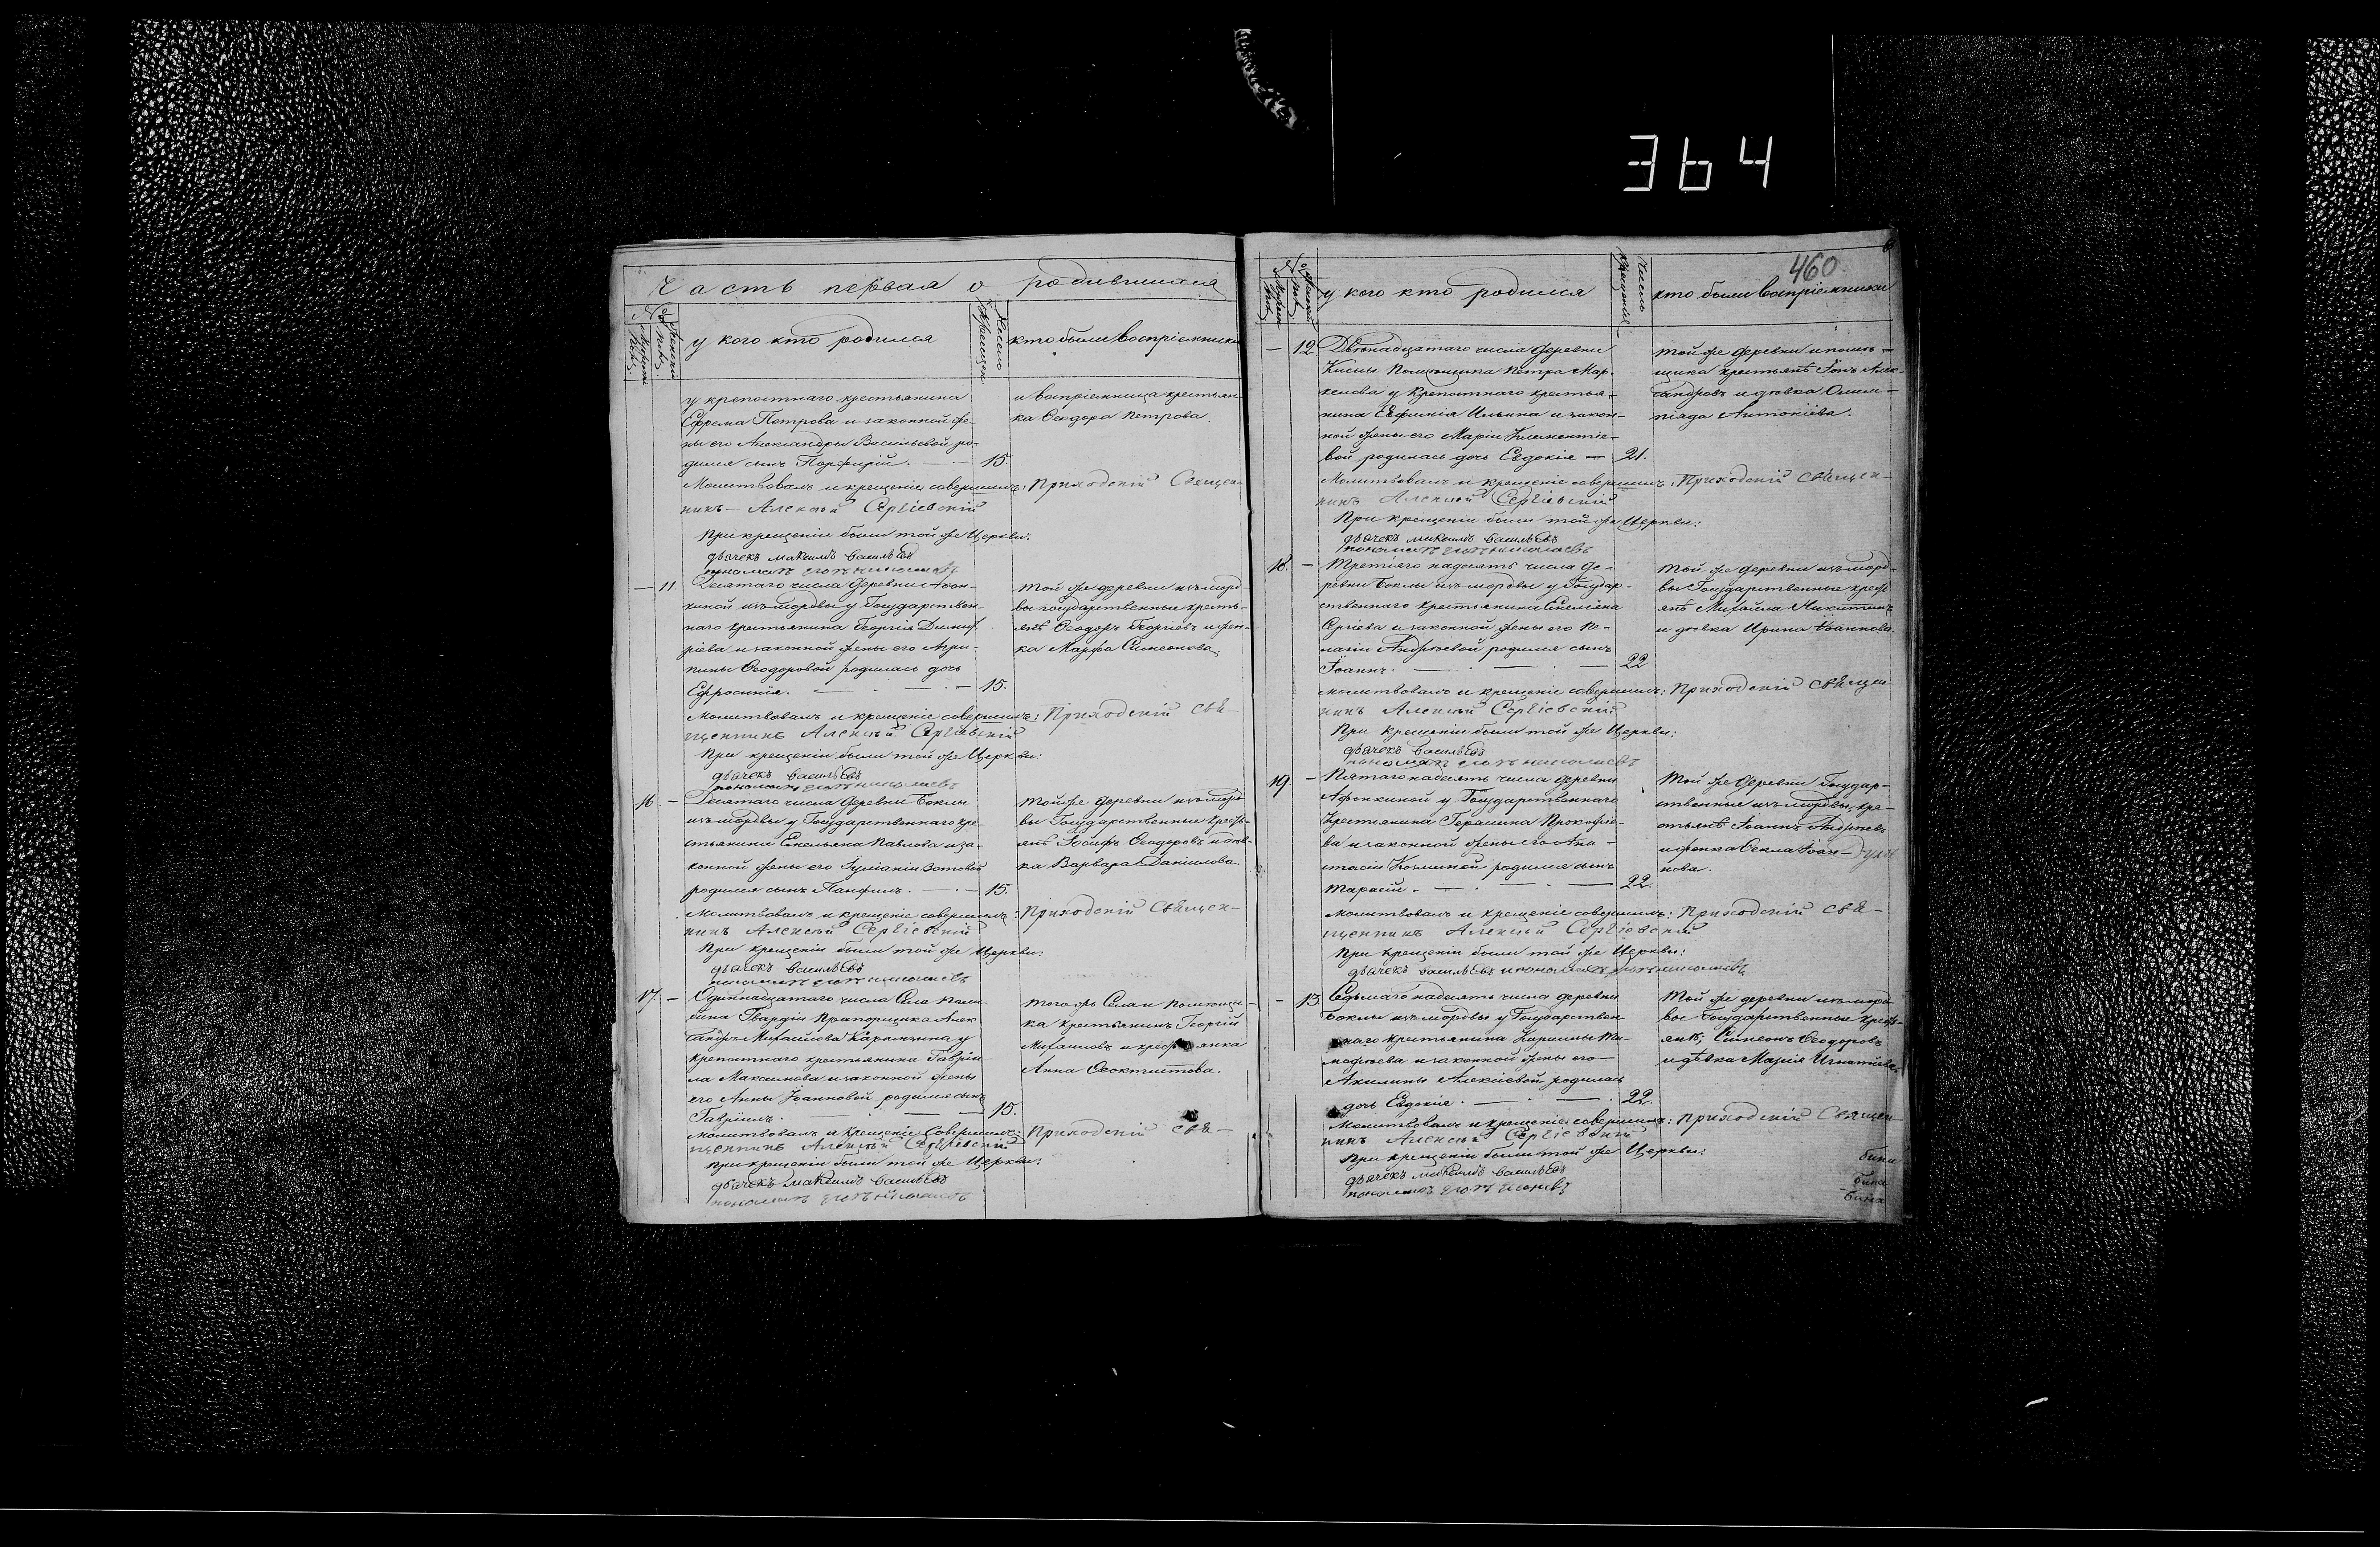 364
Часть первая о родившихся
№
Мужеска пол.
Женска пол.
у кого кто родился
Число крещен.
кто были воспріемники
у крепостнаго крестьянина
Ефрема Петрова и законной же-
ны его Александры Васильевой ро-
дился сынъ Порфирій. 15.
и воспріемница крестьян-
ка Ѳеодора Петрова.
Молитвовалъ и крещеніе совершилъ: Приходскій Священ-
никъ Алексѣй Сергіевскій
При крещеніи были той же Церкви:
дьячекъ Максимъ Васильевъ
11. Десятаго числа Деревни Афон-
киной изъ мордвы у Государствен-
наго крестьянина Георгія Димит-
ріева и законной жены его Агри-
пины Ѳеодоровой родилась дочь
Ефросинія. 15.
той же деревни изъ морд-
вы государственные кресть-
янѣ Ѳеодоръ Георгіевъ и жен-
ка Марфа Симеонова.
Молитвовалъ и крещеніе совершилъ: Приходскій Свя-
щенникъ Алексѣй Сергіевскій
При крещеніи были той же Церкви:
дьячекъ Васильевъ
16. Десятаго числа Деревни Боклы
изъ мордвы у Государственнаго кре-
стьянина Емельяна Павлова и за-
конной жены его Іуліаніи Зотовой
родился сынъ Панфилъ. 15.
той же деревни изъ морд-
вы Государственные кресть-
янѣ Іосифъ Ѳеодоровъ и дѣв-
ка Варвара Даніилова.
Молитвовалъ и крещеніе совершилъ: Приходскій Священ-
никъ Алексѣй Сергіевскій
При крещеніи были той же Церкви:
дьячекъ Васильевъ
17. Одиннадцатаго числа Села
Гвардіи Прапорщика Алек
сандра Михайлова Карамзина у
крепостнаго крестьянина Гавріи-
ла Максимова и законной жены
его Анны Іоанновой родился сынъ
Гавріилъ. 15.
того же Села и помѣщи-
ка крестьянинъ Георгій
Михайловъ и крестьянка
Анна Ѳеоктистова.
Молитвовалъ и крещеніе совершилъ: Приходскій Свя-
щенникъ Алексѣй Сергіевскій
При крещеніи были той же Церкви:
дьячекъ Максимъ Васильевъ
460
№
Мужеска пол.
Женской пол.
у кого кто родился
Число крещенія
кто были воспріемники
12. Двѣнадцатаго числа деревни
Кислы Помѣщика Петра Мар-
келова у Крепостнаго крестья-
нина Евфимія Ильина и закон-
ной жены его Маріи Климентіе-
вой родилась дочь Евдокія 21.
той же деревни и помѣ-
щика крестьянѣ Іовъ Алек-
сандровъ и дѣвка Олим-
піада Антоніева.
Молитвовалъ и крещеніе совершилъ: Приходскій Священ-
никъ Алексѣй Сергіевскій
При крещеніи были той же Церкви:
дьячекъ Максимъ Васильевъ
18. Третьяго надесять числа де-
ревни Боклы изъ мордвы у Государ-
ственнаго крестьянина
Сергіева и законной жены его Пе-
лагіи Андреевой родился сынъ
Іоаннъ. 22
той же деревни изъ морд-
вы Государственные кресть
янѣ Михайла Никитинъ
и дѣвка Ирина Іоаннова.
молитвовалъ и крещеніе совершилъ: Приходскій Священ-
никъ Алексѣй Сергіевскій
При крещеніи были той же Церкви:
дьячекъ Васильевъ
19. Пятаго надесять числа деревни
Афонкиной у Государственнаго
Крестьянина Герасима Прокофіе-
ва и законной жены его Ана-
стасіи Козминой родился сынъ
Тарасій. 22.
той же деревни Государ-
ственные изъ мордвы, кре-
стьянѣ Іоаннъ Андреевъ
и женка Ѳекла Іоан-
нова.
молитвовалъ и крещеніе совершилъ: Приходскій Свя-
щенникъ Алексѣй Сергіевскій
При крещеніи были той же Церкви:
дьячекъ Васильевъ и пономарь
13. Седьмаго надесять числа деревни
Боклы изъ мордвы у Государствен-
наго крестьянина Кирилы Ти-
мофеева и законной жены его
Акилины Алексіевой родилась
дочь Евдокія. 22.
той же деревни изъ морд-
вы Государственные кресть-
янѣ, Симеонъ Ѳеодоровъ
и дѣвка Марія Игнатіева.
Молитвовалъ и крещеніе совершилъ: Приходскій Священ-
никъ Алексѣй Сергіевскій
При крещеніи были той же Церкви:
дьячекъ Максимъ Васильевъ